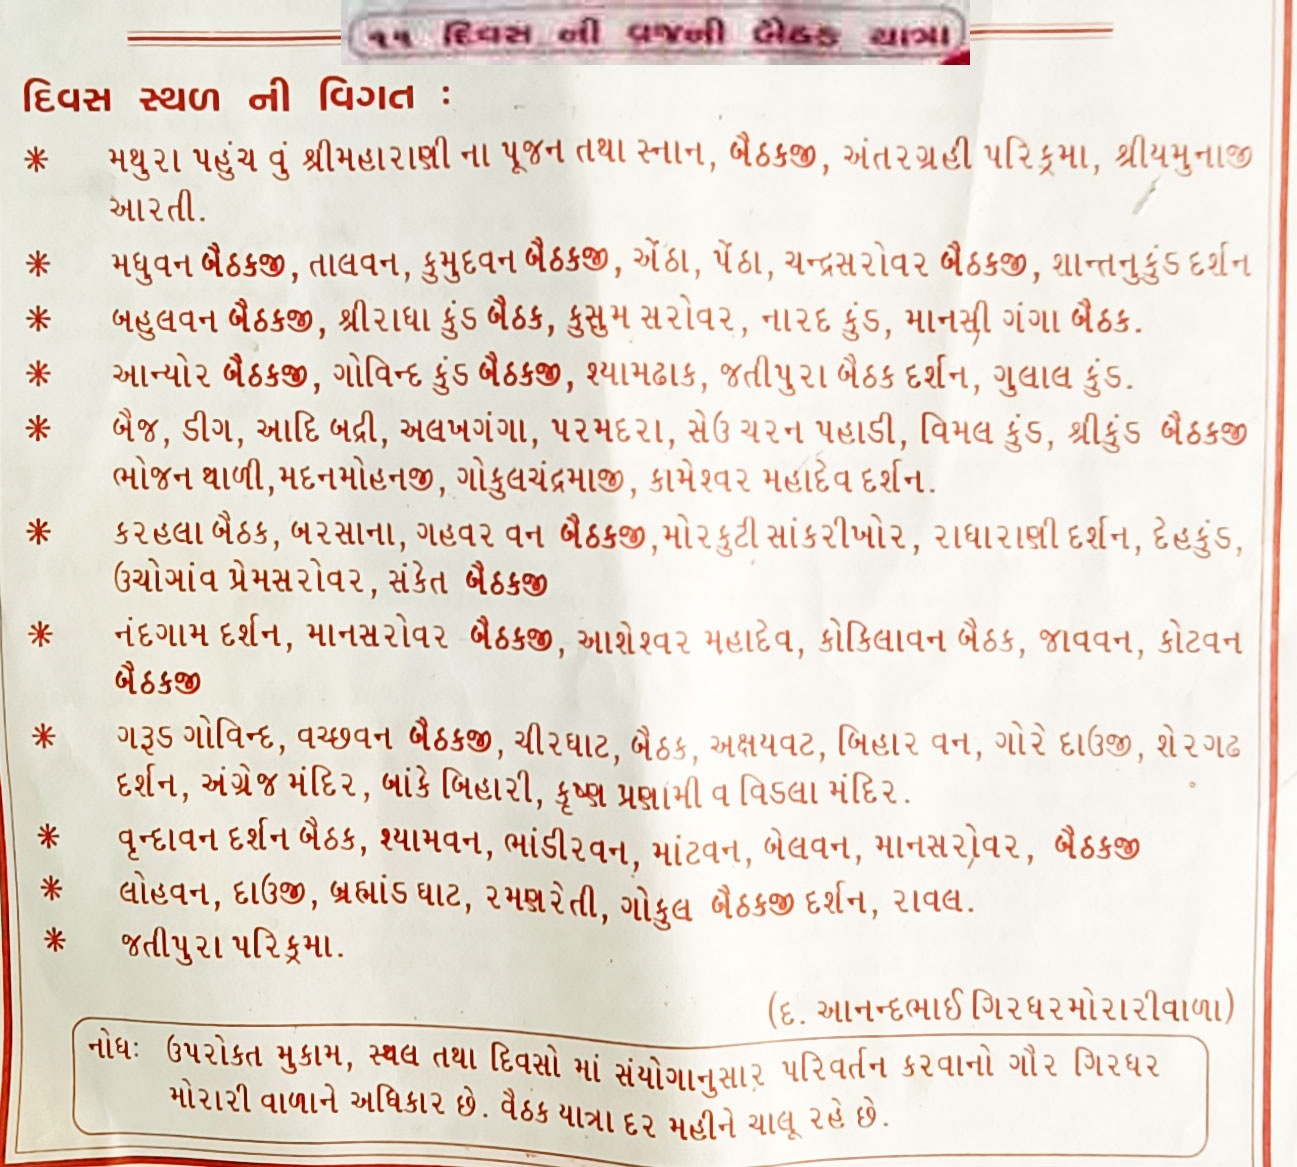 ૧૧ દિવસ ની વ્રજની બેઠક યાત્રા
દિવસ સ્થળ ની વિગત :
* મથુરા પહુંચ વું શ્રીમહારાણી ના પૂજન તથા સ્નાન, બૈઠકજી, અંતરગ્રહી પરિક્રમા, શ્રીયમુનાજી
આરતી.
* મધુવન બૈઠકજી, તાલવન, કુમુદવન બૈઠકજી, એંઠા, પેંઠા, ચન્દ્રસરોવર બૈઠકજી, શાન્તનુકુંડ દર્શન
* બહુલવન બૈઠકજી, શ્રીરાધા કુંડ બૈઠક, કુસુમ સરોવર, નારદ કુંડ, માનસી ગંગા બૈઠક.
* આન્યોર બૈઠકજી, ગોવિન્દ કુંડ બૈઠકજી, શ્યામઢાક, જતીપુરા બૈઠક દર્શન, ગુલાલ કુંડ.
* બૈજ, ડીગ, આદિ બદ્રી, અલખગંગા, પરમદરા, સેઉ ચરન પહાડી, વિમલ કુંડ, શ્રીકુંડ બૈઠકજી
ભોજન થાળી, મદનમોહનજી, ગોકુલચંદ્રમાજી, કામેશ્વર મહાદેવ દર્શન.
* કરહલા બૈઠક, બરસાના, ગહવર વન બૈઠકજી, મોરકુટી સાંકરીખોર, રાધારાણી દર્શન, દેહકુંડ,
ઉચોગાંવ પ્રેમસરોવર, સંકેત બૈઠકજી
* નંદગામ દર્શન, માનસરોવર બૈઠકજી, આશેશ્વર મહાદેવ, કોકિલાવન બૈઠક, જાવવન, કોટવન
બૈઠકજી
* ગરૂડ ગોવિન્દ, વચ્છવન બૈઠકજી, ચીરઘાટ, બૈઠક, અક્ષયવટ, બિહાર વન, ગોરે દાઉજી, શેરગઢ
દર્શન, અંગ્રેજ મંદિર, બાંકે બિહારી, કૃષ્ણ પ્રણામી વ વિડલા મંદિર.
* વૃન્દાવન દર્શન બૈઠક, શ્યામવન, ભાંડીરવન, માંટવન, બેલવન, માનસરોવર, બૈઠકજી
* લોહવન, દાઉજી, બ્રહ્માંડ ઘાટ, રમણરેતી, ગોકુલ બૈઠકજી દર્શન, રાવલ.
* જતીપુરા પરિક્રમા.
(દ. આનન્દભાઈ ગિરધરમોરારીવાળા)
નોધઃ ઉપરોકત મુકામ, સ્થલ તથા દિવસો માં સંયોગાનુસાર પરિવર્તન કરવાનો ગૌર ગિરધર
મોરારી વાળાને અધિકાર છે. વૈઠક યાત્રા દર મહીને ચાલૂ રહે છે.